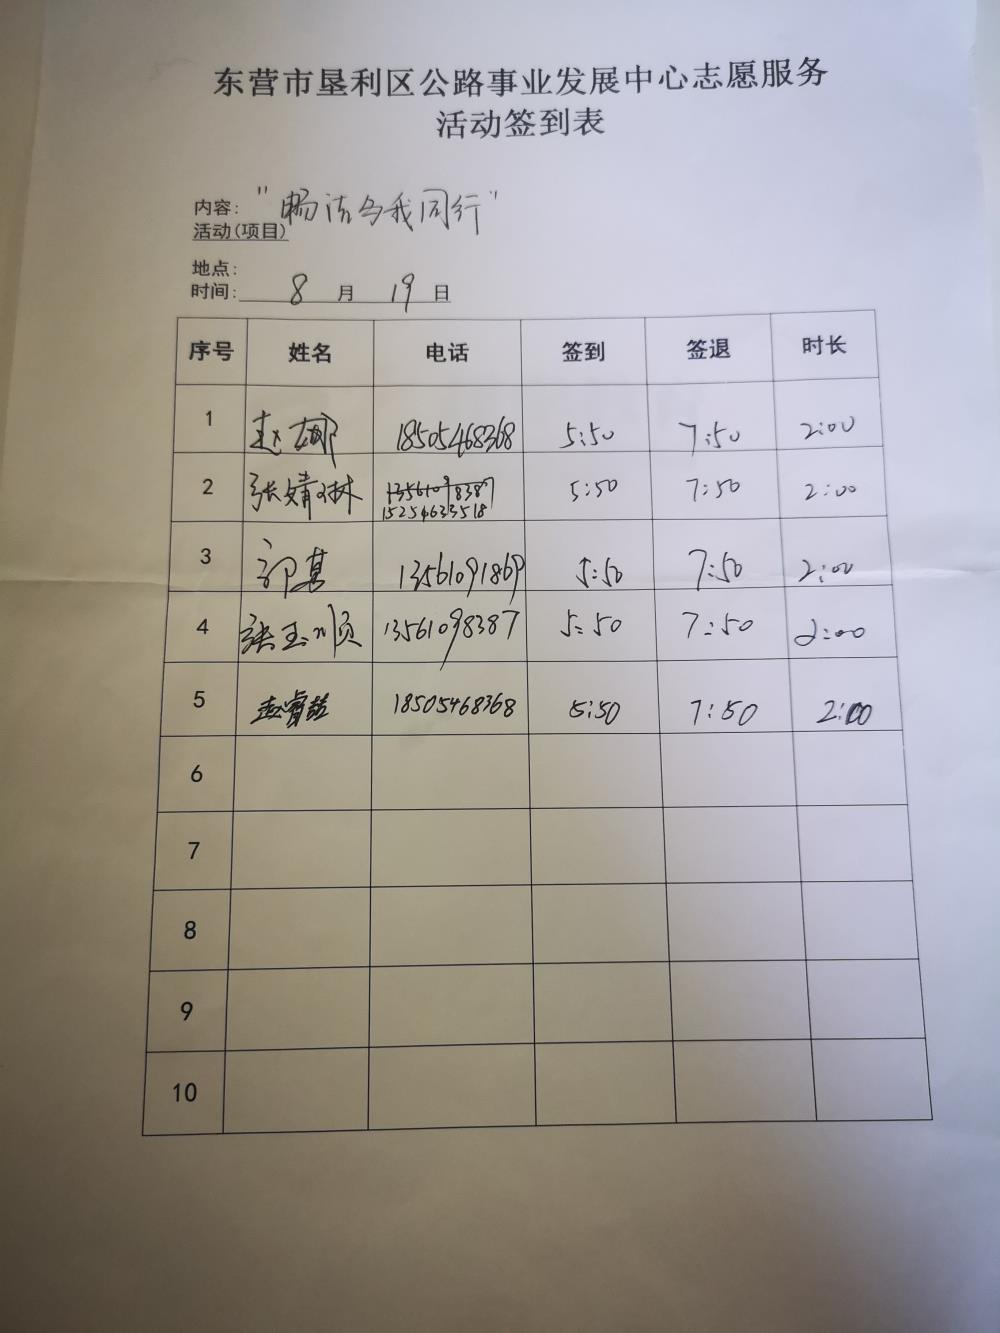 东营市垦利区公路事业发展中心志愿服务
活动签到表
内容：
"畅洁与我同行"
活动(项目)
地点：
时间： 8 月 19 日
序号 姓名 电话 签到 签退 时长
1 赵娜 18505468368 5:50 7:50 2:00
2 张婧琳 13561098387 15254633518 5:50 7:50 2:00
3 13561091869 5:50 7:50 2:00
4 张玉顺 13561098387 5:50 7:50 2:00
5 赵睿喆 18505468368 5:50 7:50 2:00
6
7
8
9
10